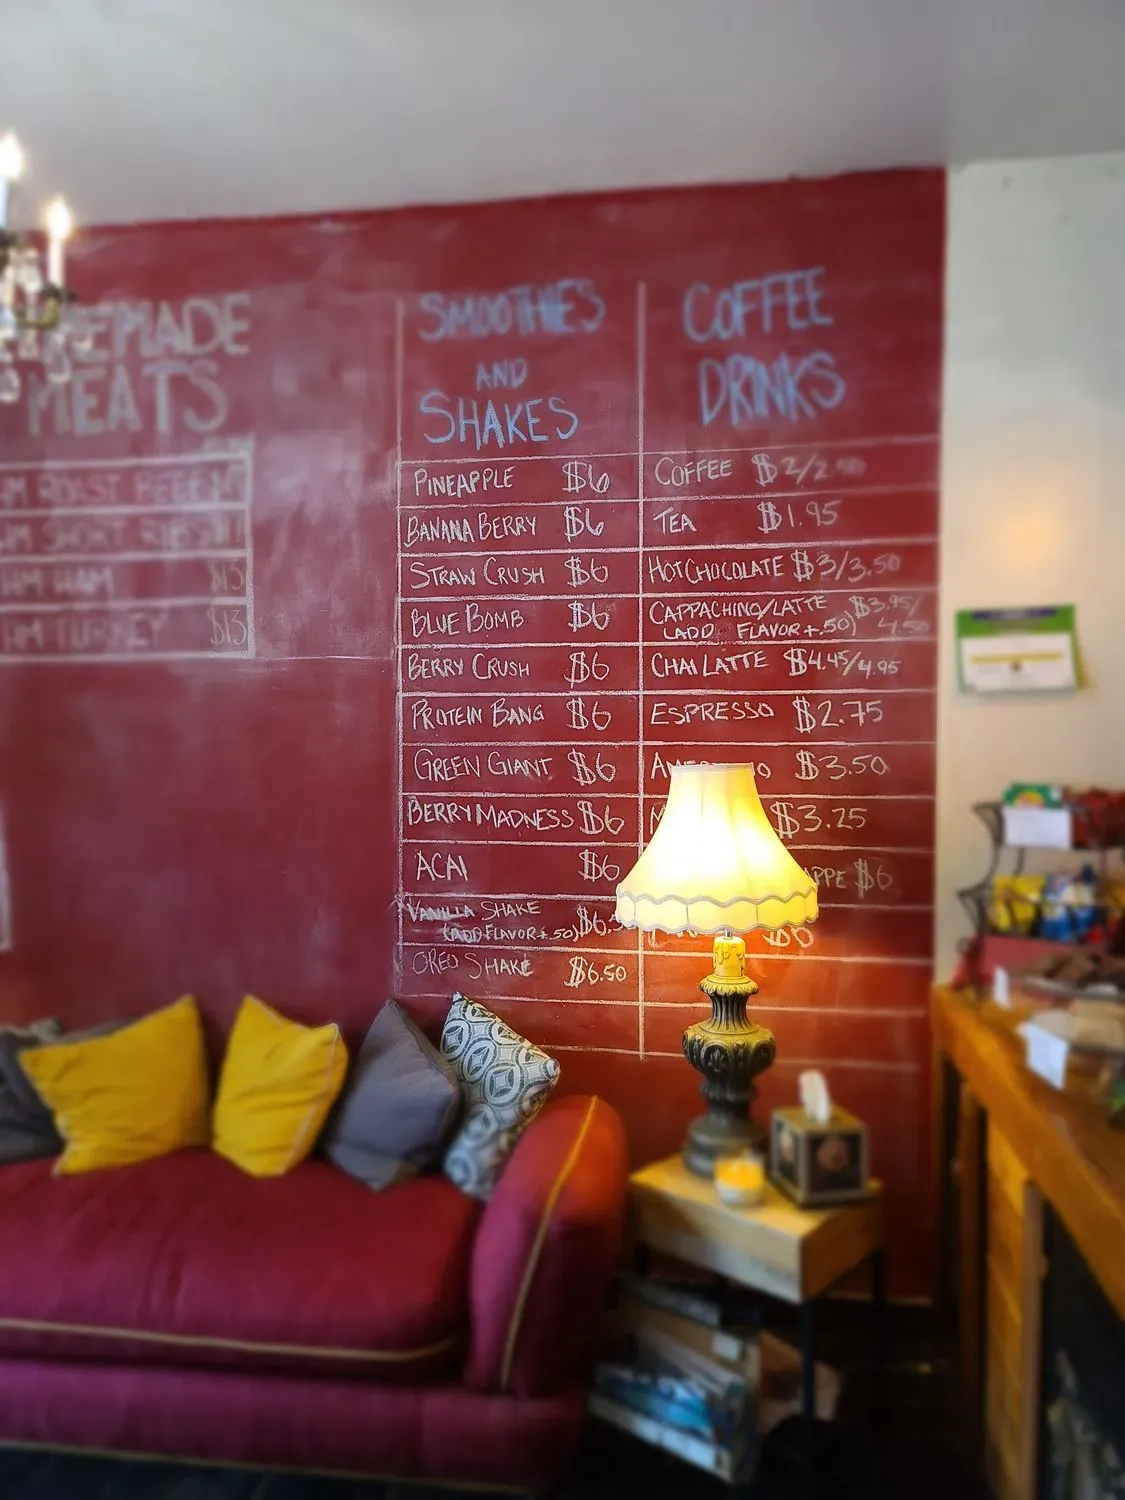 MEATS
HM ROAST BEEF
HM SHORT RIBS
HM HAM $13
HM TURKEY $13
SMOOTHIES
AND
SHAKES
PINEAPPLE $6
BANANA BERRY $6
STRAW CRUSH $6
BLUE BOMB $6
BERRY CRUSH $6
PROTEIN BANG $6
GREEN GIANT $6
BERRY MADNESS $6
ACAI $6
VANILLA SHAKE
(ADD FLAVOR +.50) $6.5
OREO SHAKE $6.50
COFFEE
DRINKS
COFFEE $2/2.50
TEA $1.95
HOT CHOCOLATE $3/3.50
CAPPACHINO/LATTE $3.95/
(ADD FLAVOR +.50) 4.50
CHAI LATTE $4.45/4.95
ESPRESSO $2.75
$3.50
$3.25
APPE $6